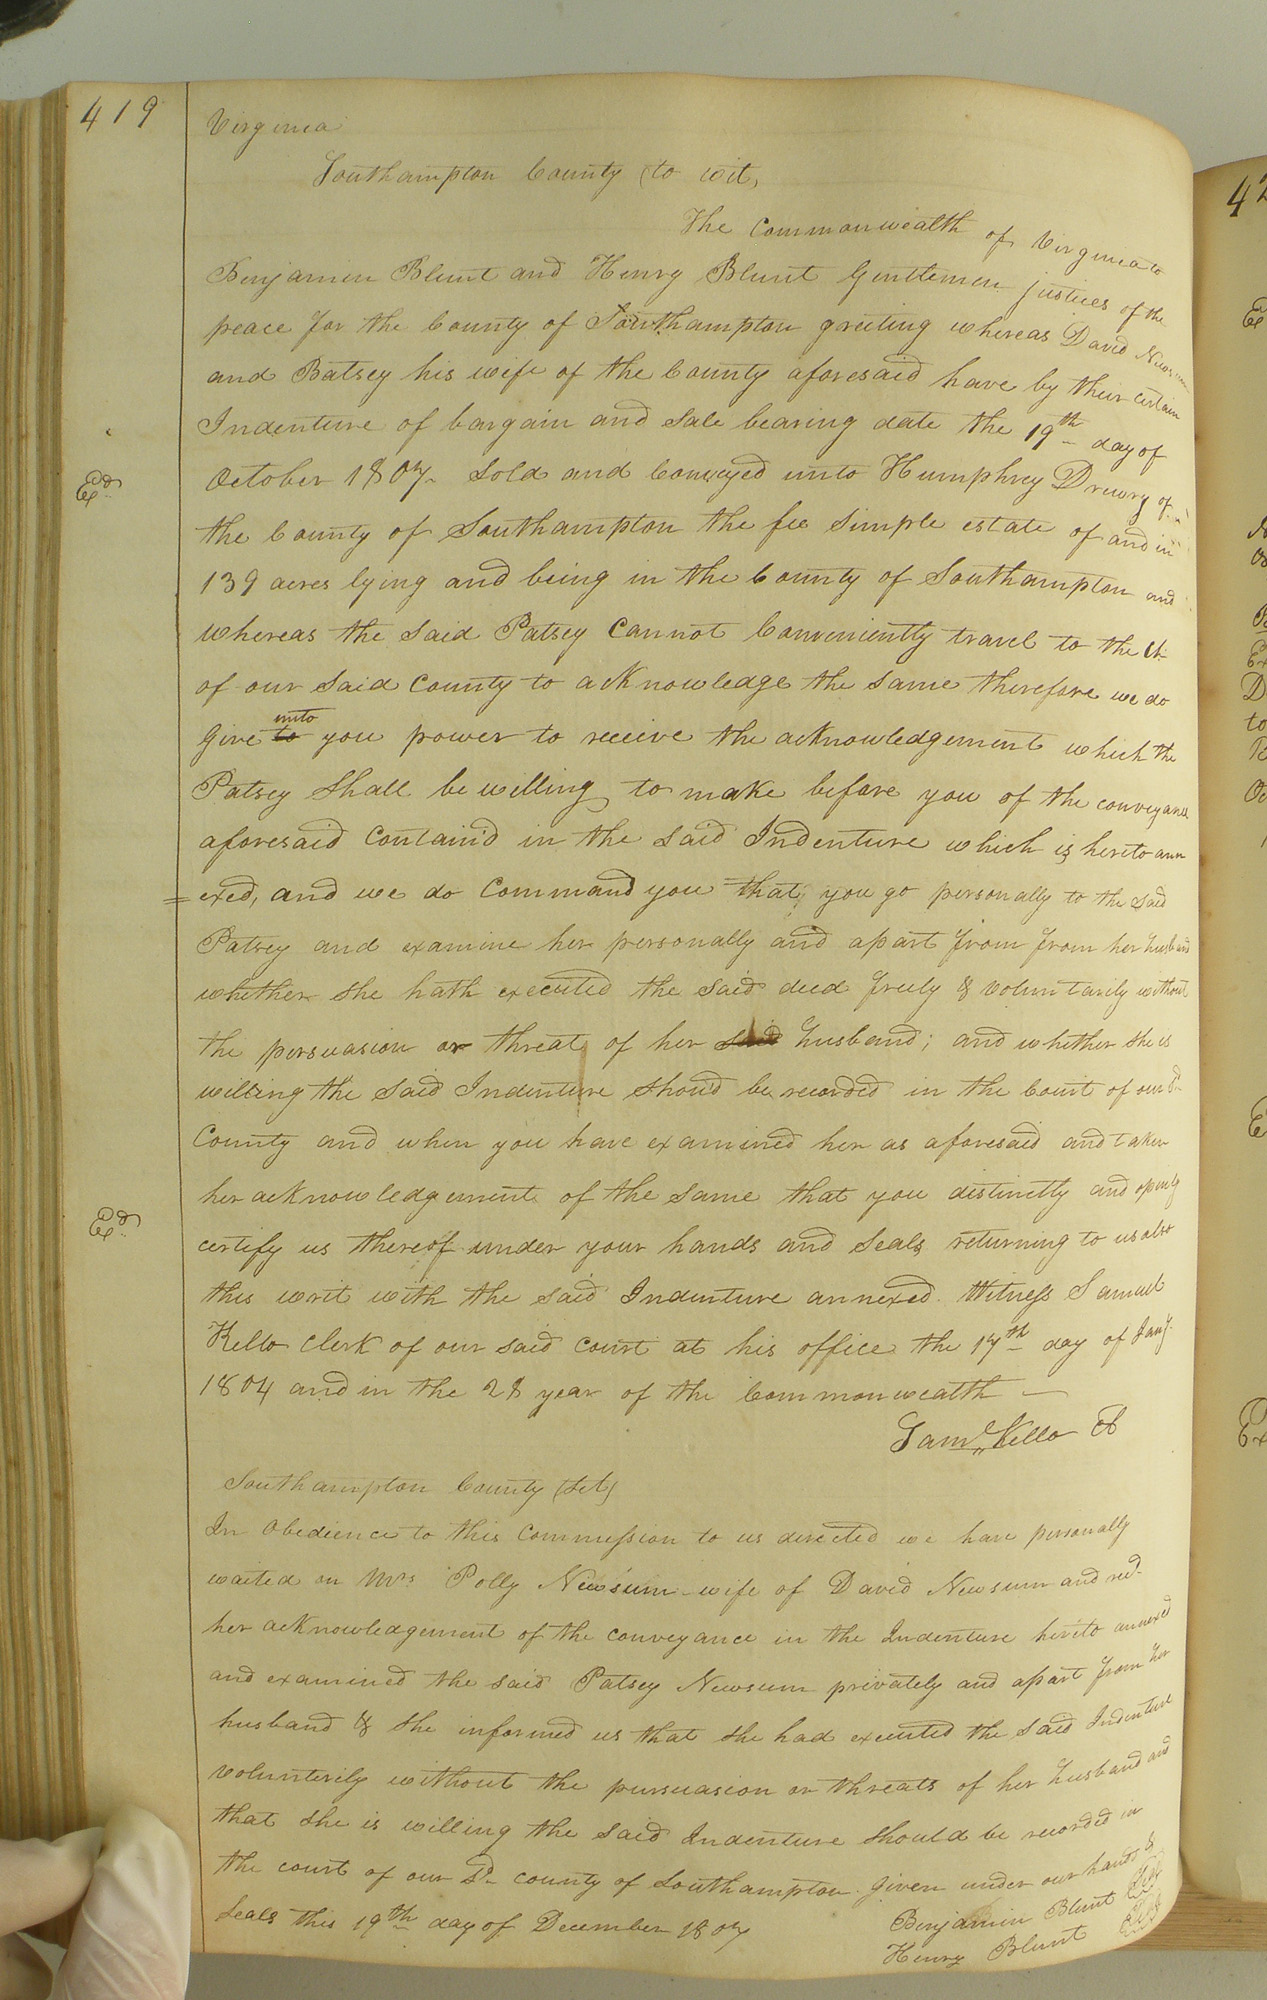 419
Virginia
Southampton County (to wit,
The Commonwealth of Virginia to
Benjamin Blunt and Henry Blunt Gentlemen justices of the
peace for the County of Southampton greeting whereas David Newsum
and Batsey his wife of the County aforesaid have by their certain
Indenture of bargain and sale bearing date the 19th day of
October 1807 Sold and Conveyed unto Humphrey Drewry of
Exd
the County of Southampton the fee simple estate of and in
139 acres lying and being in the County of Southampton and
whereas the said Patsey Cannot Conveniently travel to the Ct
of our said County to acknowledge the same therefore we do
Give to unto you power to receive the acknowledgement which the
Patsey shall be willing to make before you of the conveyance
aforesaid Contain'd in the said Indenture which is hereto ann
=exed, and we do Command you that you go personally to the said
Patsey and examine her personally and apart from from her husband
whether she hath executed the said deed freely & voluntarily without
the persuasion or threat of her said husband; and whether she is
willing the said Indenture shou'd be recorded in the Court of our sd
County and when you have examined her as aforesaid and taken
her acknowledgement of the same that you distinctly and openly
Exd
certify us thereof under your hands and seals returning to us also
this writ with the said Indenture annexed. Witness Samuel
Kello Clerk of our said Court at his office the 17th day of Jany.
1804 and in the 28 year of the Commonwealth —
Saml. Kello Ct
Southampton County (Sct)
In Obedience to this Commission to us directed we have personally
waited on Mrs Polly Newsum wife of David Newsum and recd.
her acknowledgement of the conveyance in the Indenture hereto annexed
and examined the said Patsey Newsum privately and apart from her
husband & she informed us that she had executed the said Indenture
volunterily without the pursuasion or threats of her husband and
that she is willing the said Indenture should be recorded in
the court of our sd county of Southampton. Given under our hands &
Seals this 19th day of December 1807
Benjamin Blunt
Henry Blunt